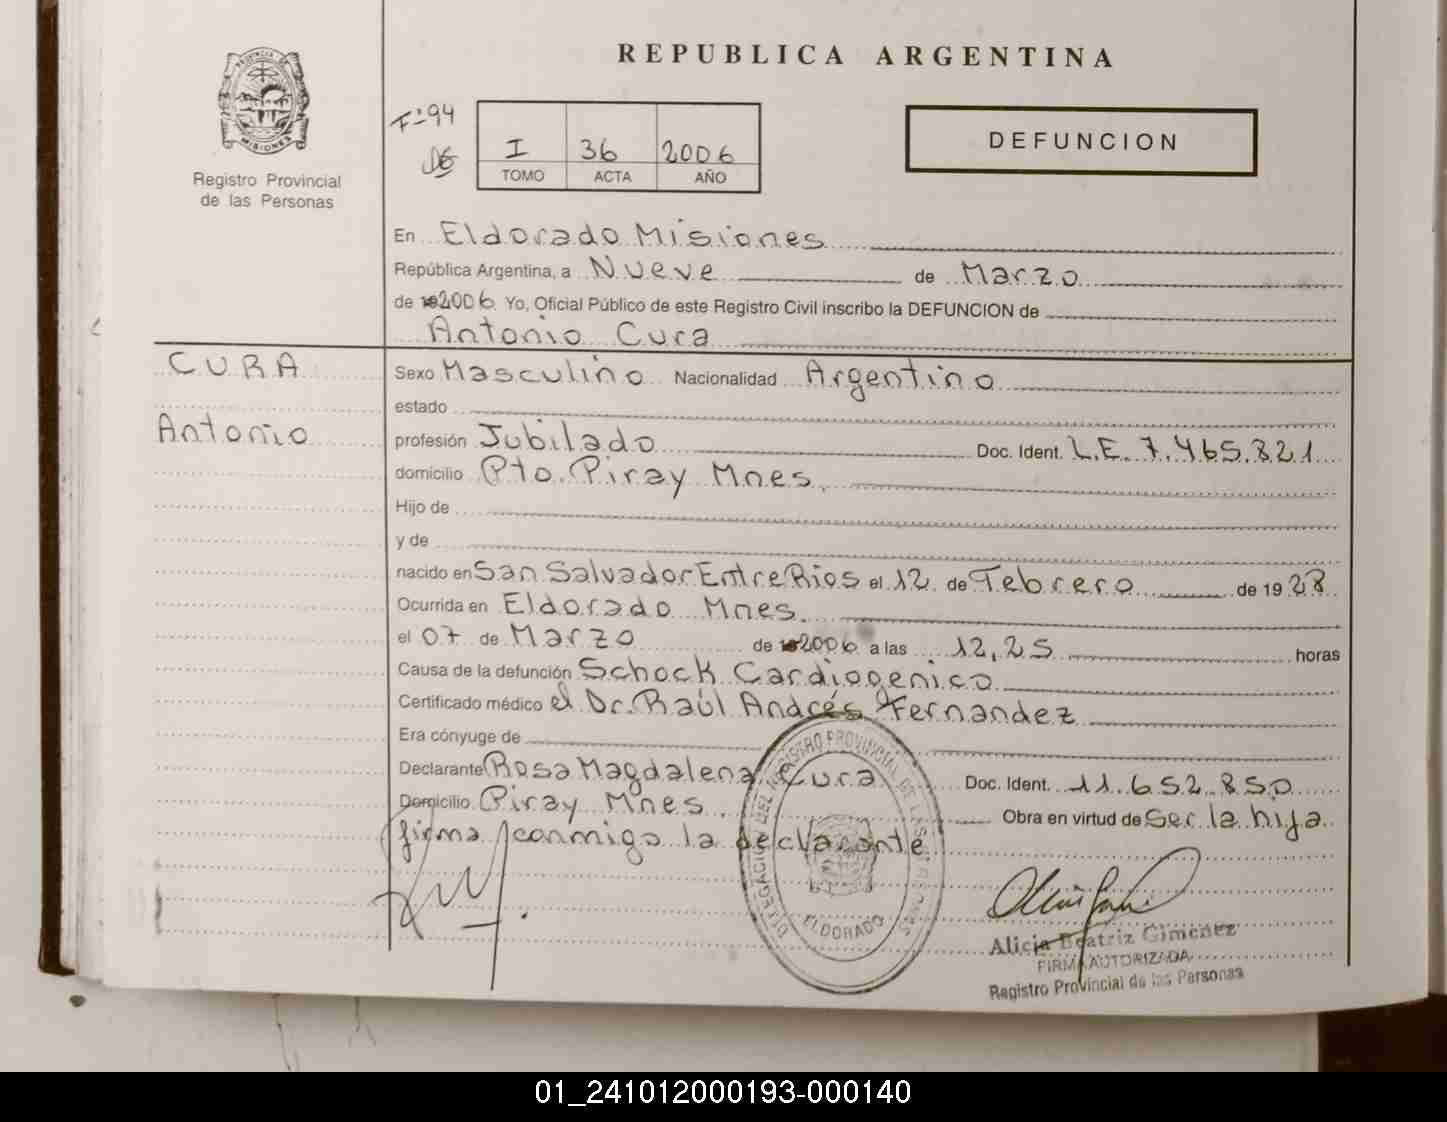 REPUBLICA ARGENTINA
PROVINCIA DE
MISIONES
Registro Provincial
de las Personas
Fº 94
I 36 2006
TOMO ACTA AÑO
DEFUNCION
En Eldorado Misiones
República Argentina, a Nueve de Marzo
de 2006 Yo, Oficial Público de este Registro Civil inscribo la DEFUNCION de
Antonio Cura
CURA
Antonio
Sexo Masculino Nacionalidad Argentino
estado
profesión Jubilado Doc. Ident. L.E. 7.465.821
domicilio Pto. Piray Mnes.
Hijo de
y de
nacido en San Salvador Entre Rios el 12 de Febrero de 19 28
Ocurrida en Eldorado Mnes.
el 07 de Marzo de 2006 a las 12,25 horas
Causa de la defunción Schock Cardiogenico
Certificado médico el Dr. Raúl Andrés Fernandez
Era cónyuge de
Declarante Rosa Magdalena Cura Doc. Ident. 11.652.850
Domicilio Piray Mnes. Obra en virtud de Ser la hija
firma conmigo la declarante
DELEGACION DEL REGISTRO PROVINCIAL DE LAS PERSONAS
ELDORADO
Alicia Beatriz Gimenez
FIRMA AUTORIZADA
Registro Provincial de las Personas
01_241012000193-000140